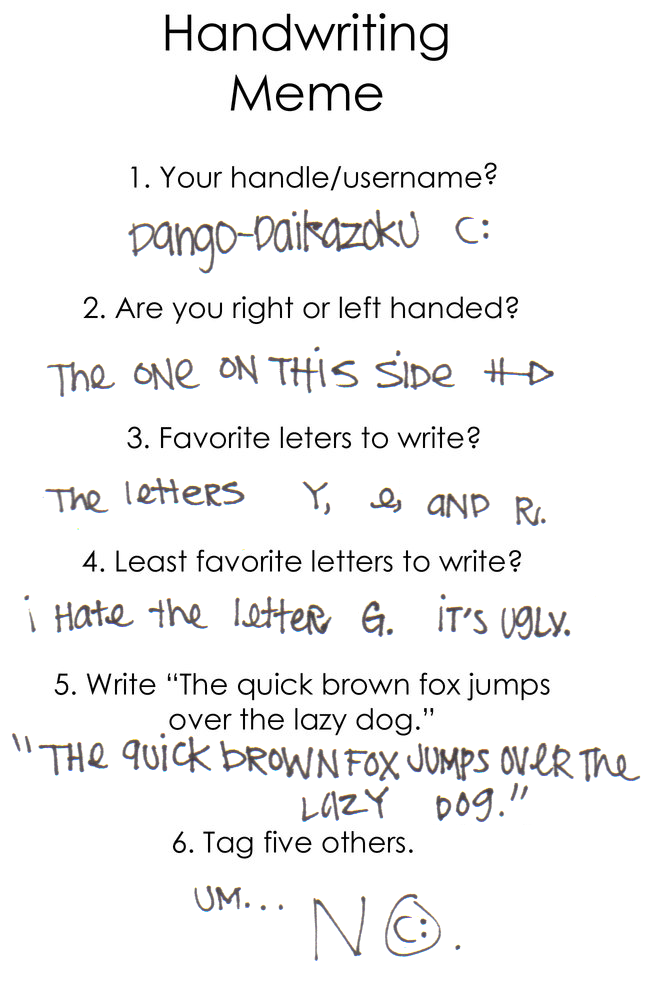 Handwriting
Meme
1. Your handle/username?
Dango-Daikazoku C:
2. Are you right or left handed?
The ONE ON THiS SiDe
3. Favorite leters to write?
The letteRS Y, e, aND R.
4. Least favorite letters to write?
i Hate the letteR G. iT'S UGLY.
5. Write “The quick brown fox jumps
over the lazy dog.”
"THe quick bROWN FOX JUMPS OVeR The
LAZY DOG."
6. Tag five others.
UM... NO.
C: